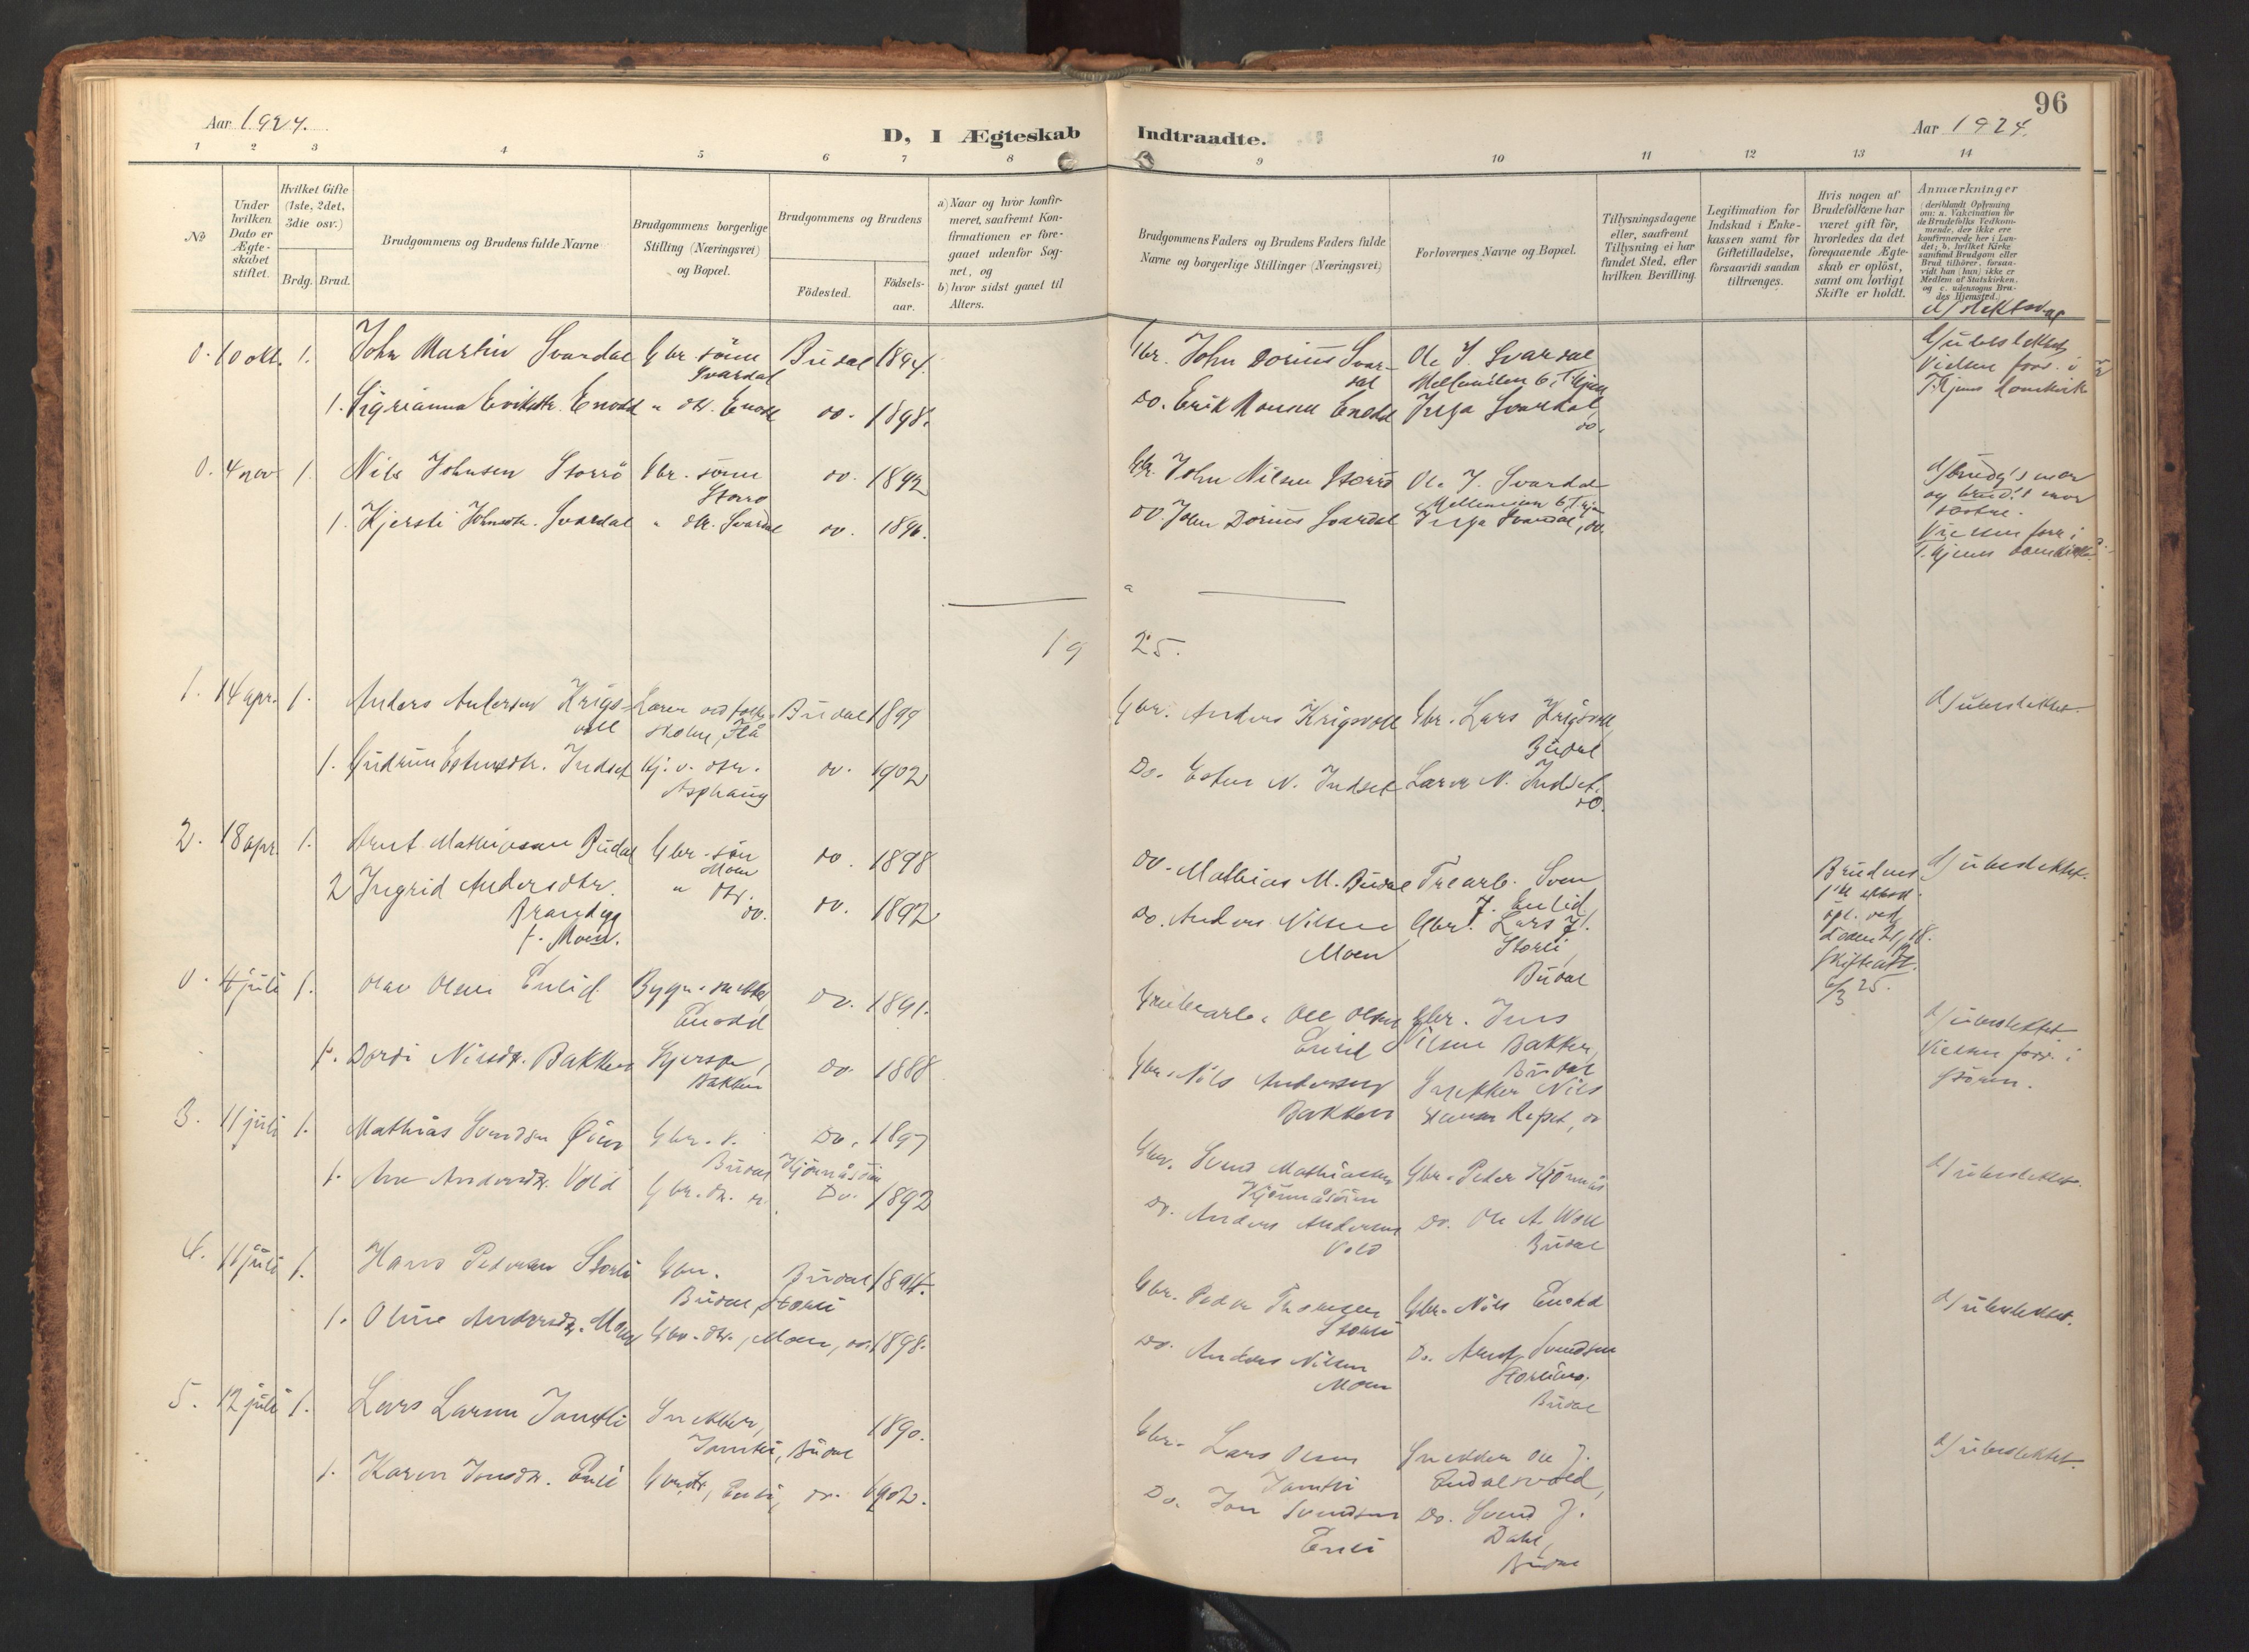 96
Aar 1924.
D, I Ægteskab
Indtraadte.
Aar 1924.
1 2 3 4 5 6 7 8 9 10 11 12 13 14
No
Under hvilken Dato er Ægte-skabet stiftet.
Hvilket Gifte (1ste, 2det, 3die osv.)
Brdg. Brud.
Brudgommens og Brudens fulde Navne
Brudgommens borgerlige Stilling (Næringsvei) og Bopæl.
Brudgommens og Brudens
Födested.
Födsels-aar.
a) Naar og hvor konfir-meret, saafremt Kon-firmationen er fore-gaaet udenfor Sog-net, og
b) hvor sidst gaaet til Alters.
Brudgommens Faders og Brudens Faders fulde Navne og borgerlige Stillinger (Næringsvei)
Forlovernes Navne og Bopæl.
Tillysningsdagene eller, saafremt Tillysning ei har fundet Sted, efter hvilken Bevilling.
Legitimation for Indskud i Enke-kassen samt for Giftetilladelse, forsaavidt saadan tiltrænges.
Hvis nogen af Brudefolkene har været gift för, hvorledes da det foregaaende Ægte-skab er oplöst, samt om lovligt Skifte er holdt.
Anmærkninger (deriblandt Oplysning om: a. Vakcination for de Brudefolks Vedkom-mende, der ikke ere konfirmerede her i Lan-det; b. hvilket Kirke-samfund Brudgom eller Brud tilhörer, forsaa-vidt han (hun) ikke er Medlem af Statskirken, og c. udensogns Bru-des Hjemsted.)
d/ slektskap
0. 10 okt. 1. John Martin Svardal Gbr. sönn Svardal Budal 1894.
Gbr. John Dorius Svardal
Ole J. Svardal
d/ ubeslektet
Vielsen forr. i T.hjems domkirke
1. Sigrianna Eriksdtr. Enodd " dtr. Enodd do. 1898.
Do. Erik Enodd
Inga Svardal, do.
0. 4 nov. 1. Nils Johnsen Storrö Gbr. sönn Storrö do. 1892
Gbr. John Nilsen Storrö
Ole J. Svardal
d/ brudg's mor og brud's mor
Vielsen forr. i T.hjems domkirke
1. Kjersti Johnsdtr. Svardal " dtr. Svardal do. 1896.
do John Dorius Svardal
Inga Svardal, do.
19 25.
1. 14 apr. 1. Anders Andersen Krigsvoll Lærer ved folkeskolen, Flå Budal 1899
Gbr. Anders Krigsvoll
Gbr. Lars Krigsvoll, Budal
d/ ubeslektet.
1. Gudrun Estensdtr. Indset Asphaug do. 1902
Do. Esten N. Indset
Lærer N. Indset, do.
2. 18 apr. 1. Arnt Mathiasen Budal Gbr. sön Moen do. 1898
do. Mathias M. Budal
Trearb. Sven J. Enlid
Brudens 1ste
d/ ubeslektet.
2 Ingrid Andersdtr. f. Moen. " dtr. do. do. 1892
Do. Anders Nilsen Moen
Gbr. Lars J. Storli, Budal
6/3 25.
0. 4 juli 1. Olav Olsen Enlid Enodd do. 1891.
Grubearb. Ole Olsen Enlid
Gbr. Jens Nilsen Bakken, Budal
d/ ubeslektet.
Vielsen forr. i Stören.
1. Dordi Nilsdtr. Bakken Bakken do. 1888
Gbr. Nils Andersen Bakken
Snekker Nils
3. 11 juli 1. Mathias Svendsen Öien Gbr. s. Budal Kjönnåsöien Do. 1897
Gbr. Svend Mathiassen Kjönnåsöien
Gbr. Peder Kjönnås
d/ ubeslektet.
1. Ane Andersdtr. Vold Gbr. dtr. Do. 1892
Do. Anders Andersen Vold
Do. Ole A. Woll Budal
4. 11 juli 1. Hans Pedersen Storli Gbr. Budal, Storli Budal 1894.
Gbr. Peder Thomsen Storli
Gbr. Nils Enodd
d/ ubeslektet.
1. Oline Andersdtr. Moen Gbr. dtr., Moen, do. 1898.
Do. Anders Nilsen Moen
Do. Arnt Svendsen Budal
5. 12 juli 1. Lars Larsen Jamtli Snekker, Jamtli, Budal 1890.
Gbr. Lars Olsen Jamtli
Snekker Ole J. Endalsvold,
d/ ubeslektet.
1. Karen Jonsdtr. Enli Gbr. dtr., Enli, do. 1902.
Do. Jon Svendsen Enli
Do. Svend J. Dahl, Budal